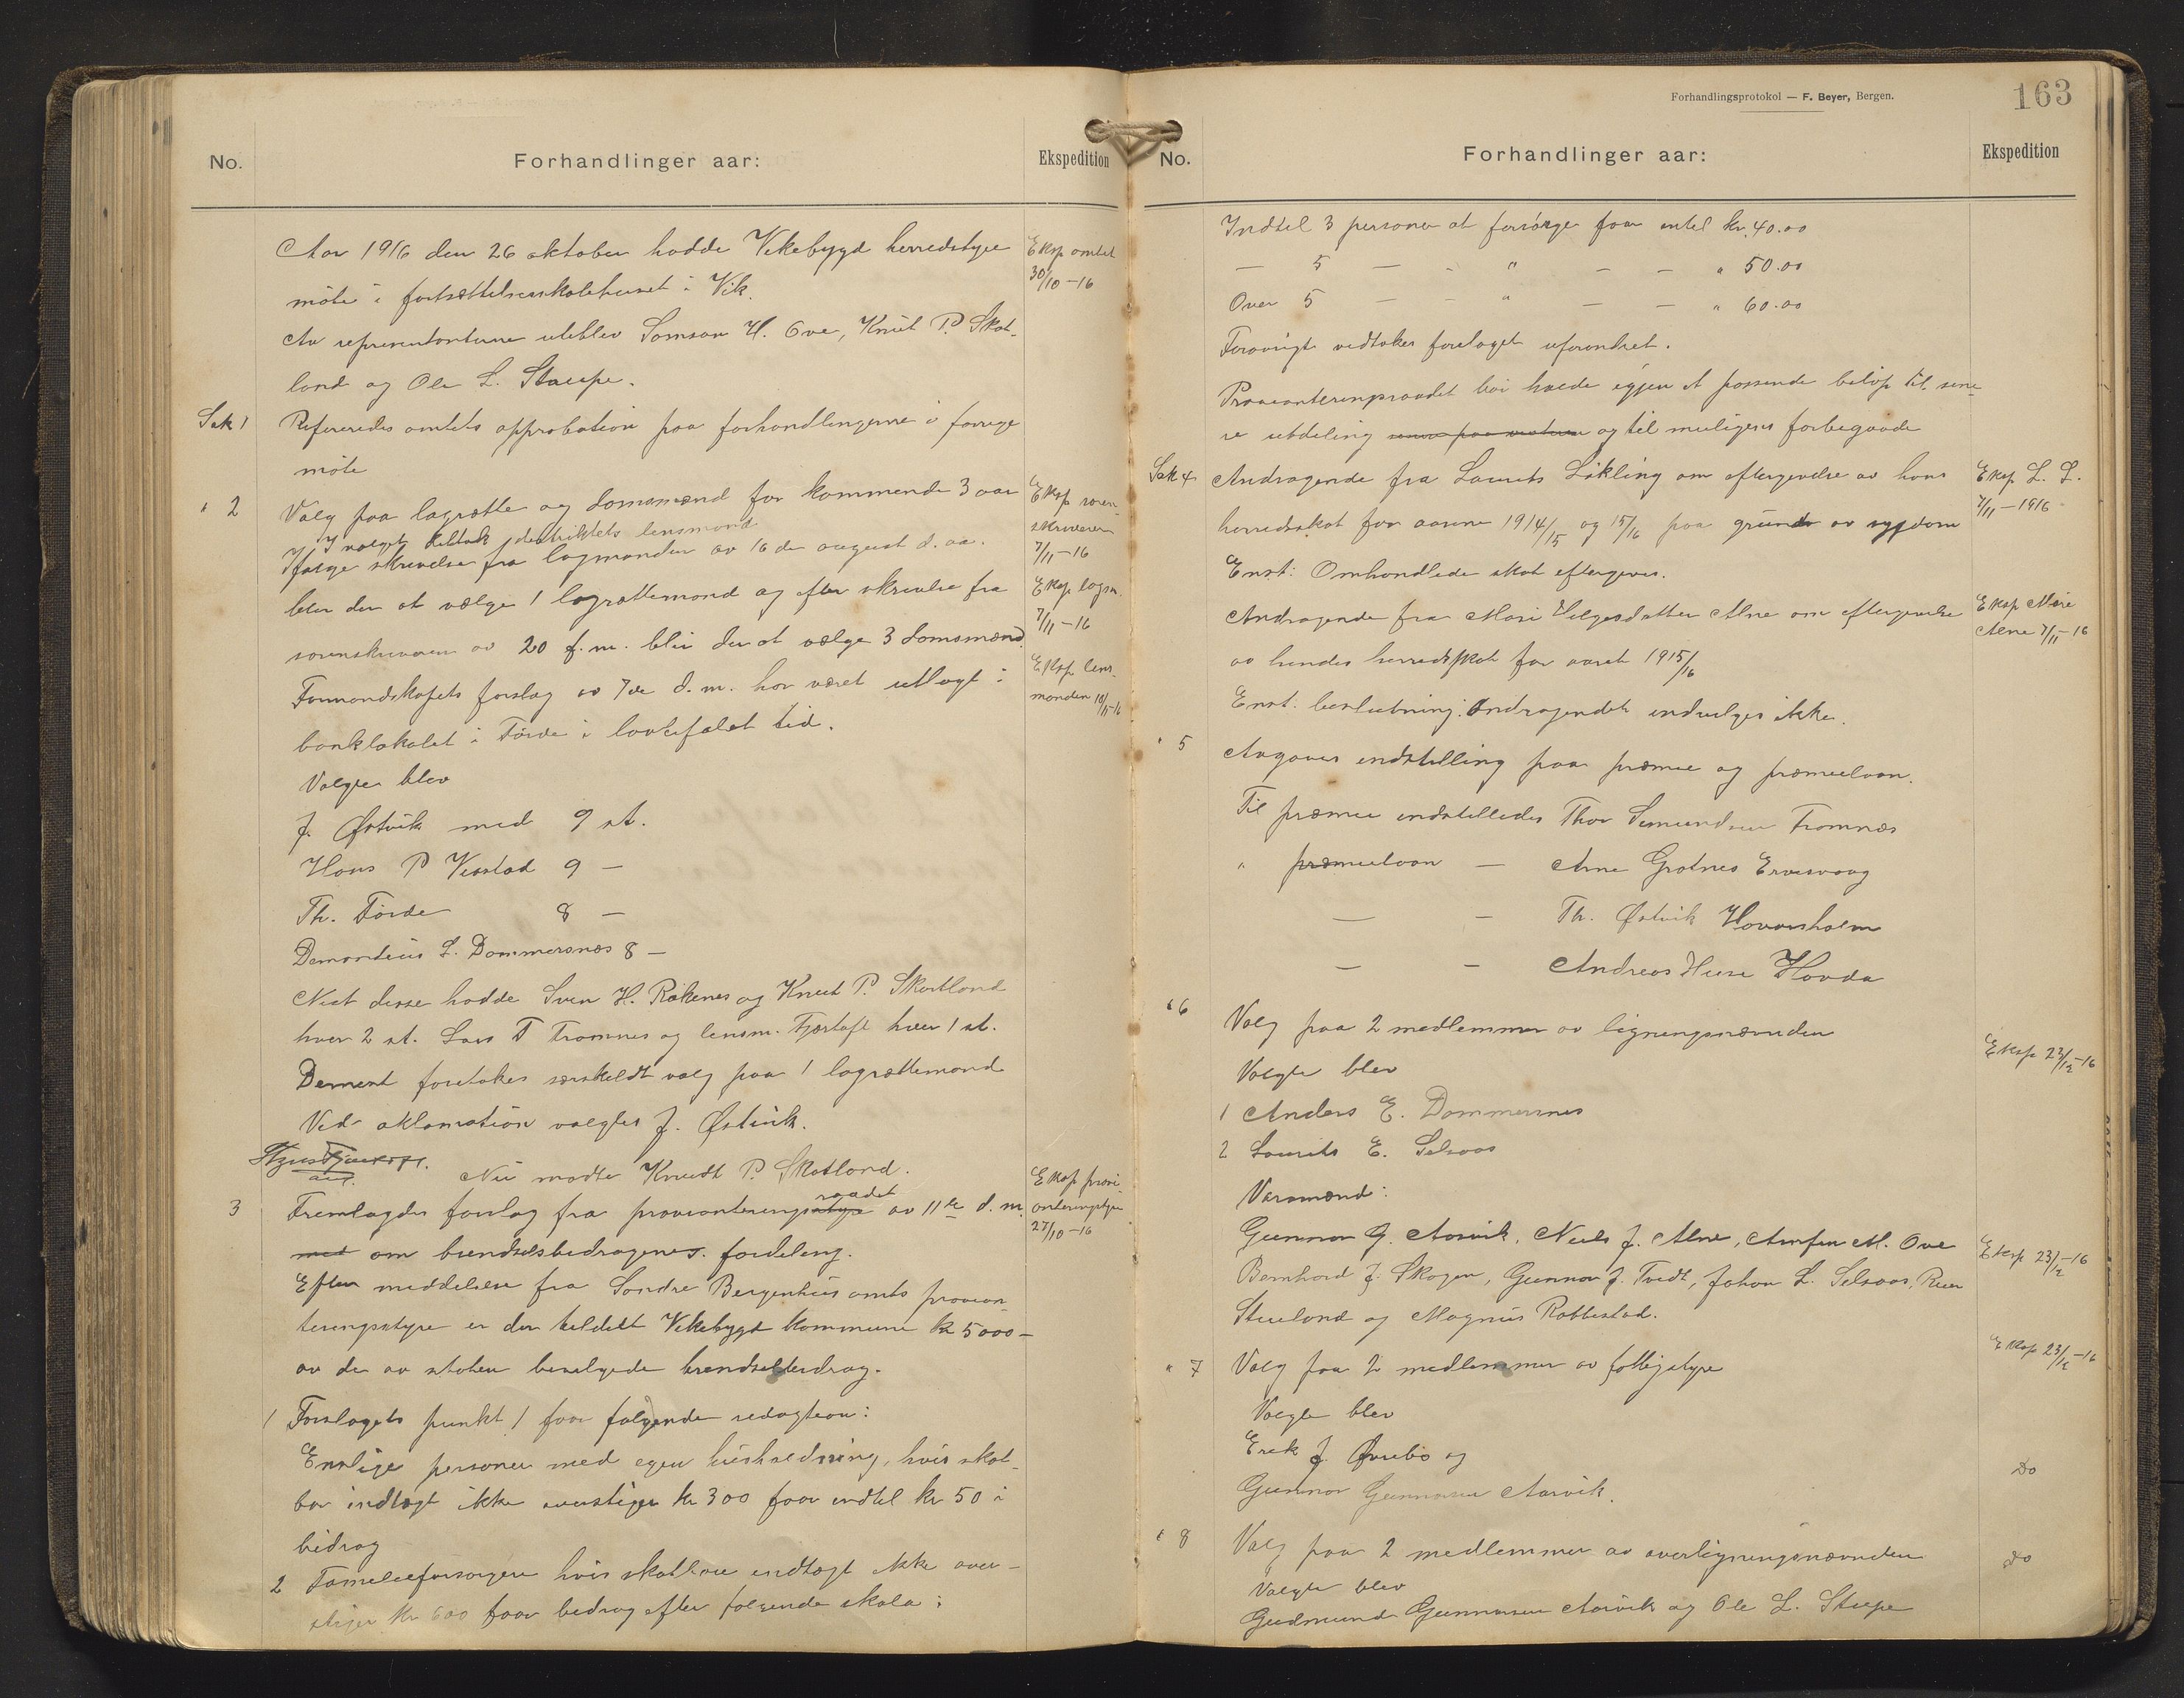 No.
Forhandlinger aar:
Ekspedition
Aar 1916 den 26 oktober hadde Vikebygd herredstyre
møte i fortsættelsesskolehuset i Vik.
Av representanterne uteblev Samson H. Ove, Knut P. Skat-
land og Ole L. Staupe.
Eksp amtet
30/10 -16
Sak 1
Refereredes amtets approbation paa forhandlingerne i forrige
møte
" 2
Valg paa lagrette og domsmænd for kommende 3 aar
I valget deltok distriktets lensmand
Ifølge skrivelse fra lagmanden av 16 de august d. aa.
blir der at vælge 1 lagrettemand og efter skrivelse fra
sorenskriveren av 20 f. m. blir der at vælge 3 domsmænd.
Formandskapets forslag av 7de d. m. har været utlagt i
banklokalet i Førde i lovbefalet tid.
Eksp soren-
skriveren
7/11 -16
Eksp lagm.
7/11 -16
Eksp lens-
manden 10/11-16
Valgte blev
J. Østvik med 9 st.
Hans P Vestad 9 —
Th. Førde 8 —
Demantius L. Dommersnes 8 —
Næst disse hadde Sven H. Røkenes og Knut P. Skartland
hver 2 st. Lars T Tromnes og lensm. Fjærtoft hver 1 st.
Dernæst foretokes særskildt valg paa 1 lagrettemand
Ved aklamation valgtes J. Østvik.
Nu møtte Knudt P. Skatland.
3
Fremlagdes forslag fra provianteringsstyre raadet av 11te d. m.
med om brendselsbidragenes fordeling.
Efter meddelelse fra Søndre Bergenhus amts provian-
teringsstyre er der tildelt Vikebygd kommune kr 5000 —
av de av staten bevilgede brendselsbidrag.
Eksp provi
anteringsstyre
27/10 -16
1 Forslagets punkt 1 faar følgende redagtion:
Enslige personer med egen husholdning, hvis skat-
bar indtægt ikke overstiger kr 300 faar indtil kr 50 i
bidrag
2 Familieforsørgere hvis skatbare indtægt ikke over-
stiger kr 600 faar bidrag efter følgende skala:
Forhandlingsprotokol — F. Beyer, Bergen.
163
No.
Forhandlinger aar:
Ekspedition
Indtil 3 personer at forsørge faar intil kr. 40.00
— 5 — - " — — " 50.00
Over 5 — - " — — " 60.00
Forøvrigt vedtokes forslaget uforandret.
Provianteringsraadet bør holde igjen et passende beløp til sene-
re utdeling og til muligens forbigaade
Sak 4
Andragende fra Laurits Løkling om eftergivelse av hans
herredsskat for aarene 1914/15 og 15/16 paa grund av sygdom
Enst: Omhandlede skat eftergives.
Eksp L. L.
7/11 - 1916
Andragende fra Mari Helgesdatter Alne om eftergivelse
av hendes herredsskat for aaret 1915/16
Enst. beslutning: Andragendet indvilges ikke.
Eksp Mari
Alne 7/11 - 16
" 5
Avgaves indstilling paa præmie og præmielaan.
Til præmie indstilledes Thor Semundsen Tromnes
" præmielaan — Arne Grotnes Ervesvaag
— — Th. Østvik Hovarsholm
— — Andreas Huse Hovda
" 6
Valg paa 2 medlemmer av ligningsnævnden
Valgte blev
1 Anders E. Dommersnes
2 Laurits E. Selsaas
Eksp 23/12 -16
Varamænd:
Gunnar G. Aarvik, Neils J. Alne, Arnfin M. Ove
Bernhard J. Skogen, Gunnar J. Tvedt, Johan L. Selsaas,
Stueland og Magnus Rabbestad.
Eksp 23/12 -16
" 7
Valg paa 2 medlemmer av fattigstyre
Valgte blev
Erik J. Ørebø og
Gunnar Gunnarsen Aarvik.
Eksp 23/12 -16
Do
" 8
Valg paa 2 medlemmer av overligningsnævnden
Valgte blev
Gudmund Gunnarsen Aarvik og Ole L. Stupe
Do